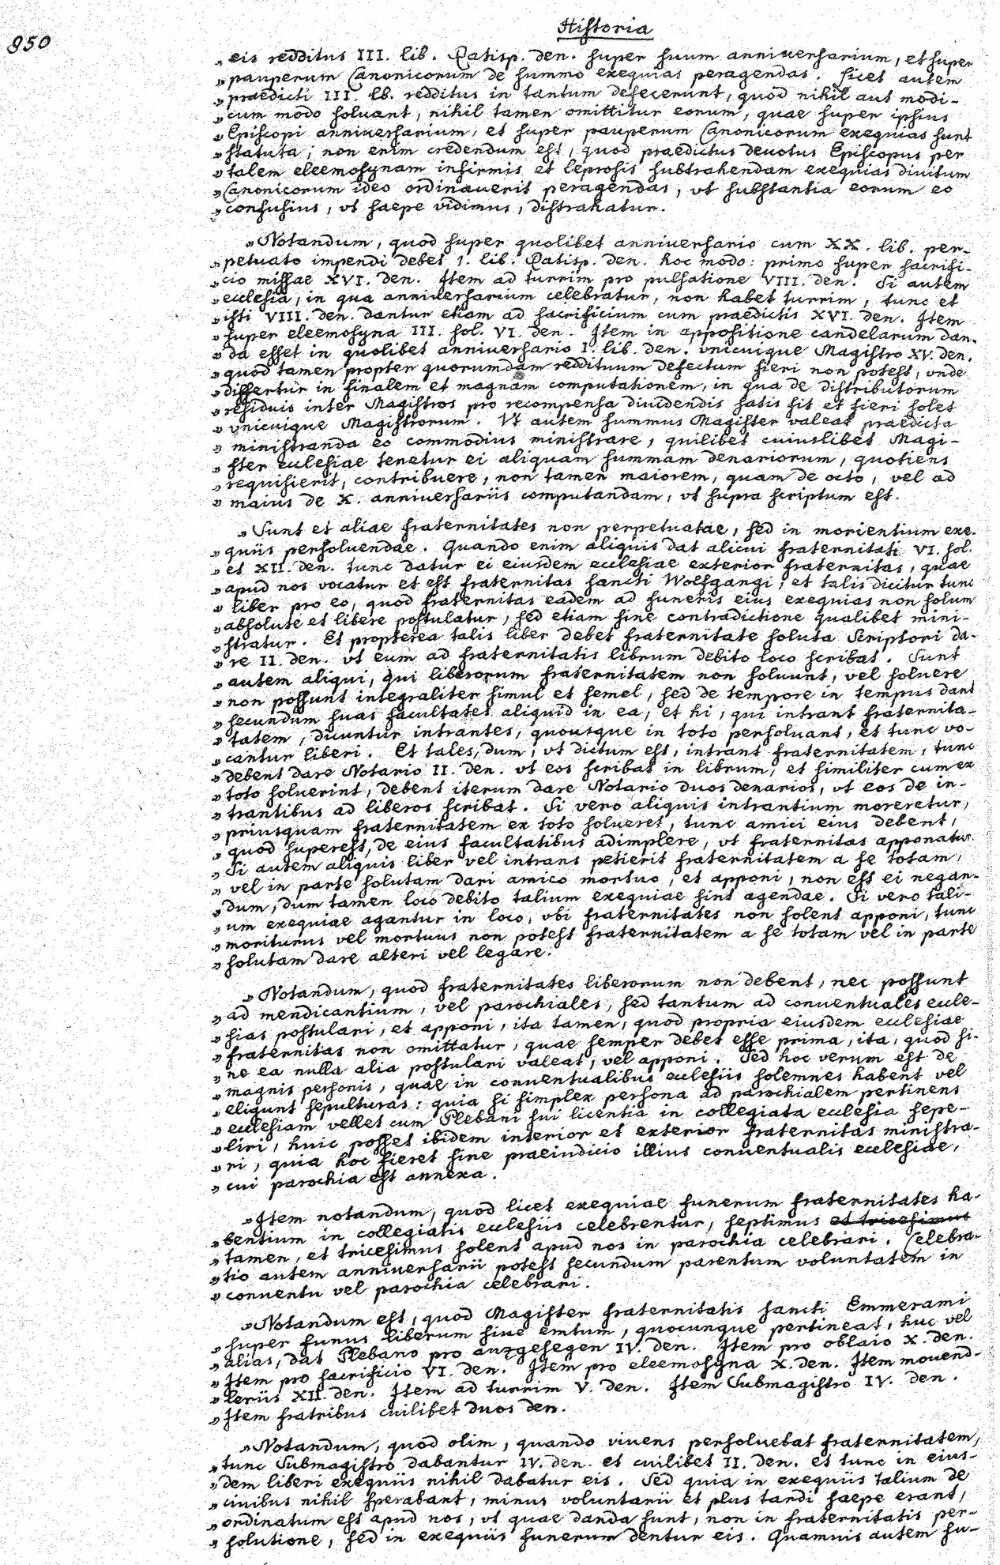 Historia
950
„ eis redditus III. lib. Ratisp. den. super suum anniuersarium, et super
„ pauperum Canonicorum de summo exequias peragendas. Licet autem
„ praedicti III. lb. redditus in tantum defecerunt, quod nihil aut modi-
„ cum modo soluant, nihil tamen omittitur eorum, quae super ipsius
„ Episcopi anniuersarium, et super pauperum Canonicorum exequias sunt
„ statuta; non enim credendum est, quod praedictus deuotus Episcopus per
„ talem eleemosynam infirmis et leprosis subtrahendam exequias diuitum
„ Canonicorum ideo ordinauerit peragendas, vt substantia eorum eo
„ confusius, vt saepe vidimus, distrahatur.
„ Notandum, quod super quolibet anniuersario cum XX. lib. per-
„ petuato impendi debet 1. lib. Ratisp. den. hoc modo: primo super sacrifi-
„ cio missae XVI. den. Item ad turrim pro pulsatione VIII. den. Si autem
„ ecclesia, in qua anniuersarium celebratur, non habet turrim, tunc et
„ isti VIII. den. dantur etiam ad sacrificium cum praedictis XVI. den. Item
„ super eleemosyna III. sol. VI. den. Item in appositione candelarum dan-
„ da esset in quolibet anniuersario I. lib. den. vnicuique Magistro XV. den.
„ quod tamen propter quorumdam reddituum defectum fieri non potest, vnde
„ differtur in finalem et magnam computationem, in qua de distributorum
„ residuis inter Magistros pro recompensa diuidendis satis fit et fieri solet
„ vnicuique Magistrorum. Vt autem summus Magister valeat praedicta
„ ministranda eo commodius ministrare, quilibet cuiuslibet Magi-
„ ster ecclesiae tenetur ei aliquam summam denariorum, quotiens
„ requisierit, contribuere, non tamen maiorem, quam de octo, vel ad
„ maius de X. anniuersariis computandam, vt supra scriptum est.
„ Sunt et aliae fraternitates non perpetuatae, sed in morientium exe-
„ quiis persoluendae. Quando enim aliquis dat alicui fraternitati VI. sol.
„ et XII. den. tunc datur ei eiusdem ecclesiae exterior fraternitas, quae
„ apud nos vocatur et est fraternitas sancti Wolfgangi, et talis dicitur tunc
„ liber pro eo, quod fraternitas eadem ad funeris eius exequias non solum
„ absolute et libere postulatur, sed etiam sine contradictione qualibet mini-
„ stratur. Et propterea talis liber debet fraternitate soluta Scriptori da-
„ re II. den. vt eum ad fraternitatis librum debito loco scribat. Sunt
„ autem aliqui, qui liberorum fraternitatem non soluunt, vel soluere
„ non possunt integraliter simul et semel, sed de tempore in tempus dant
„ secundum suas facultates aliquid in ea, et hi, qui intrant fraternita-
„ tatem, dicuntur intrantes, quousque in toto persoluant, et tunc vo-
„ cantur liberi. Et tales, dum, vt dictum est, intrant fraternitatem, tunc
„ debent dare Notario II. den. vt eos scribat in librum, et similiter cum ex
„ toto soluerint, debent iterum dare Notario duos denarios, vt eos de in-
„ trantibus ad liberos scribat. Si vero aliquis intrantium moreretur,
„ priusquam fraternitatem ex toto solueret, tunc amici eius debent,
„ quod superest, de eius facultatibus adimplere, vt fraternitas apponatur.
„ Si autem aliquis liber vel intrans petierit fraternitatem a se totam,
„ vel in parte solutam dari amico mortuo, et apponi, non est ei negan-
„ dum, dum tamen loco debito talium exequiae sint agendae. Si vero tali-
„ um exequiae agantur in loco, vbi fraternitates non solent apponi, tunc
„ moriturus vel mortuus non potest fraternitatem a se totam vel in parte
„ solutam dare alteri vel legare.
„ Notandum, quod fraternitates liberorum non debent, nec possunt
„ ad mendicantium, vel parochiales, sed tantum ad conuentuales eccle-
„ sias postulari, et apponi, ita tamen, quod propria eiusdem ecclesiae
„ fraternitas non omittatur, quae semper debet esse prima, ita, quod si-
„ ne ea nulla alia postulari valeat, vel apponi. Sed hoc verum est de
„ magnis personis, quae in conuentualibus ecclesiis solemnes habent vel
„ eligunt sepulturas: quia si simplex persona ad parochialem pertinens
„ ecclesiam vellet cum Plebani sui licentia in collegiata ecclesia sepe-
„ liri, huic posset ibidem interior et exterior fraternitas ministra-
„ ri, quia hoc fieret sine praeiudicio illius conuentualis ecclesiae,
„ cui parochia est annexa.
„ Item notandum, quod licet exequiae funerum fraternitates ha-
„ bentium in collegiatis ecclesiis celebrentur, septimus et tricesimus
„ tamen, et tricesimus solent apud nos in parochia celebrari. Celebra-
„ tio autem anniuersarii potest secundum parentum voluntatem in
„ conuentu vel parochia celebrari.
„ Notandum est, quod Magister fraternitatis sancti Emmerami
„ super funus liberum siue emtum, quocunque pertineat, huc vel
„ alias, dat Plebano pro anzgesegen IV. den. Item pro oblaio X. den.
„ Item pro sacrificio VI. den. Item pro eleemosyna X. den. Item mouend-
„ leriis XII. den. Item ad turrim V. den. Item Submagistro IV. den.
„ Item fratribus cuilibet duos den.
„ Notandum, quod olim, quando viuens persoluebat fraternitatem,
„ tunc Submagistro dabantur IV. den. et cuilibet II. den. et tunc in eius-
„ dem liberi exequiis nihil dabatur eis. Sed quia in exequiis talium de
„ ciuibus nihil sperabant, minus voluntarii et plus tardi saepe erant,
„ ordinatum est apud nos, vt quae danda sunt, non in fraternitatis per-
„ solutione, sed in exequiis funerum dentur eis. Quamuis autem su-